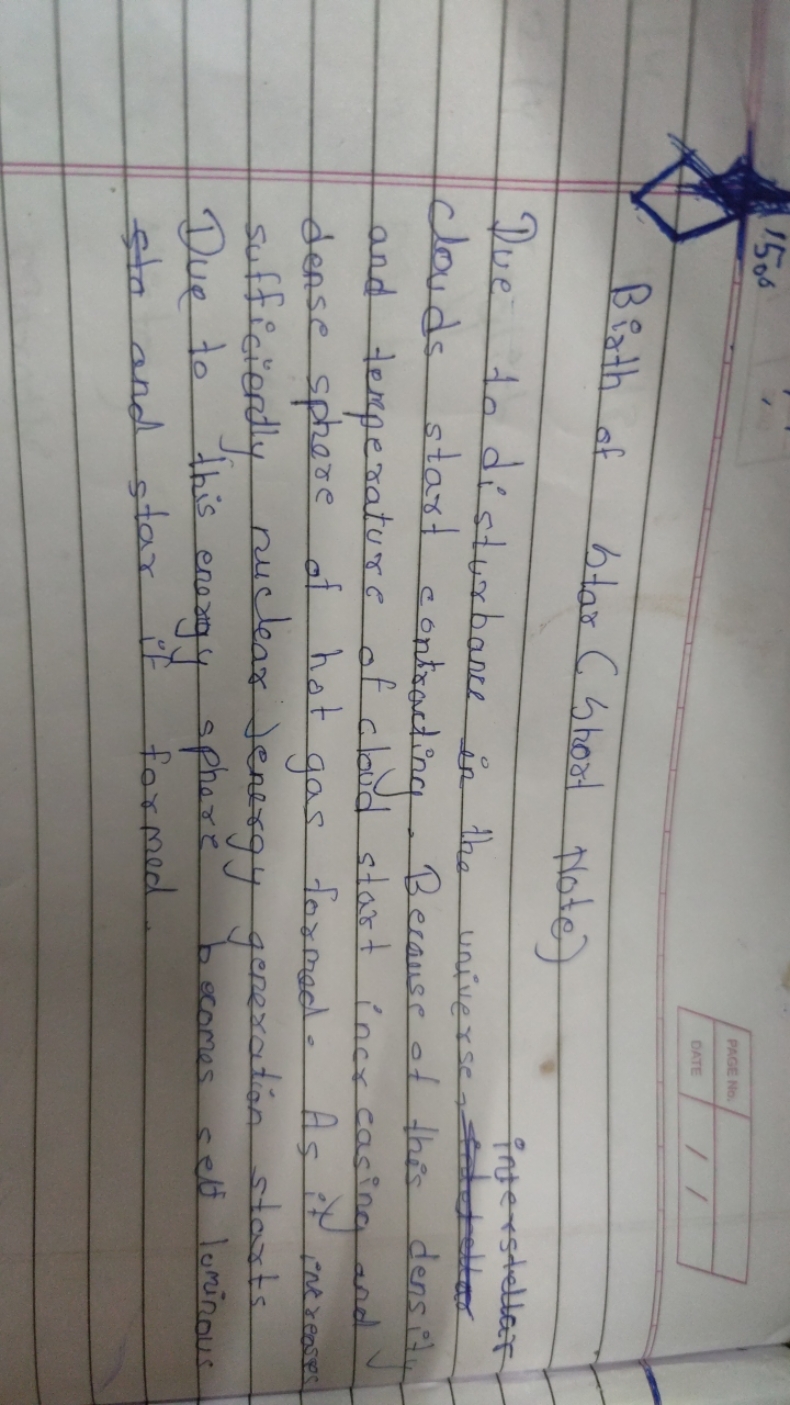 1500
PAGE No.
DATE / /
Birth of Star (Short Note)
interstellar
Due to disturbance in the universe,
clouds start contracting. Because of this density
and temperature of cloud start increasing and
dense sphere of hot gas formed. As it increases
sufficiently nuclear energy generation starts
Due to this energy sphere becomes self luminous
and star it formed.